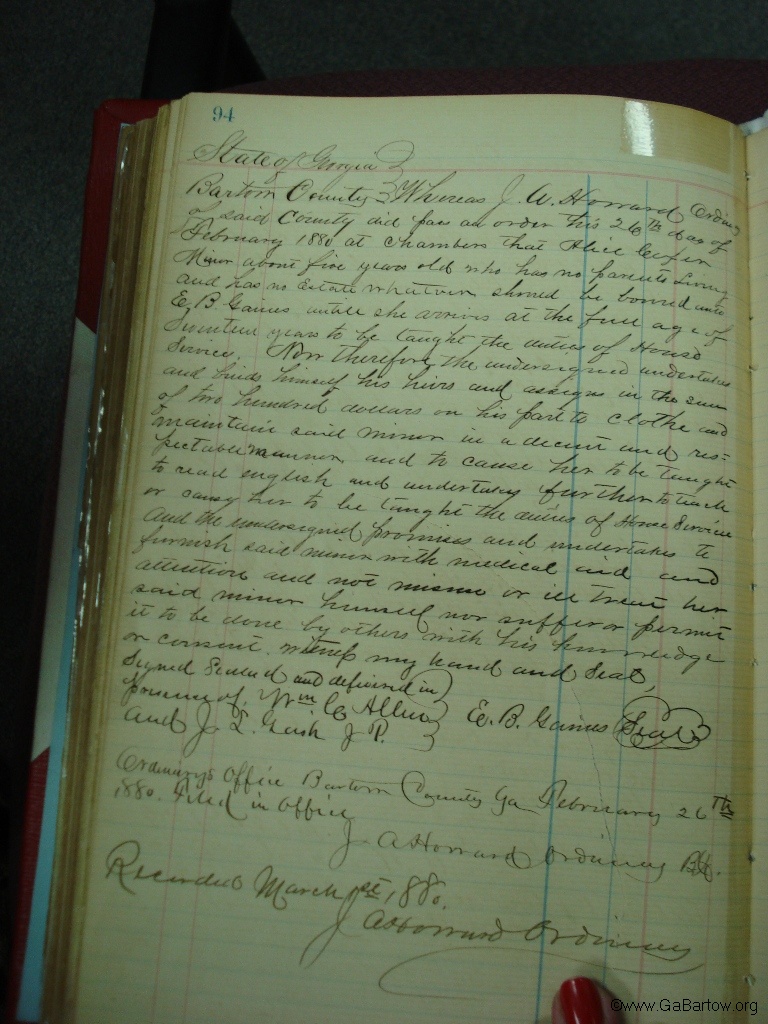 94
State of Georgia
Bartow County Whereas J. A. Howard Ordinary
of said County did pass an order this 26th day of
February 1880 at Chambers that Alice
Minor about five years old who has no parents living
and has no Estate whatever should be bound unto
E. B. Gaines untill she arrives at the full age of
Seventeen years to be taught the duties of House
Service. Now therefore the undersigned undertakes
and binds himself his heirs and assigns in the sum
of two hundred dollars on his part to clothe and
maintain said minor in a decent and res=
pectable manner and to cause her to be taught
to read english and undertakes further to teach
or cause her to be taught the duties of House Service
And the undersigned promises and undertakes to
furnish said minor with medical aid and
attention and not misuse or ill treat her
said minor himself nor suffer or permit
it to be done by others with his knowledge
or consent. witness my hand and Seal,
Signed Sealed and delivered in
presence of, Wm C Allen E. B. Gaines Seal
and J. L. J. P.
Ordinarys Office Bartow County Ga February 26th
1880. Filed in Office
J A Howard Ordinary
Recorded March 1st, 1880.
J A Howard Ordinary
©www.GaBartow.org